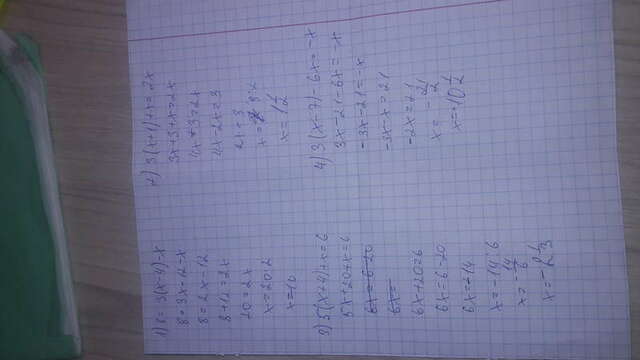 1) 8 = 3(x-4)-x
8 = 3x-12-x
8 = 2x-12
8+12 = 2x
20 = 2x
x = 20:2
x = 10
2) 3(x+1)+x = 2x
3x+3+x = 2x
4x+3 = 2x
4x-2x = 3
2x = 3
x = 3:2
x = 1 1/2
3) 5(x+4)+x = 6
5x+20+x = 6
6x = 6-20
6x =
6x+20 = 6
6x = 6-20
6x = -14
x = -14:6
x = -14/6
x = -2 1/3
4) 3(x-7)-6x = -x
3x-21-6x = -x
-3x-21 = -x
-3x-x = 21
-2x = 21
x = -21/2
x = -10 1/2